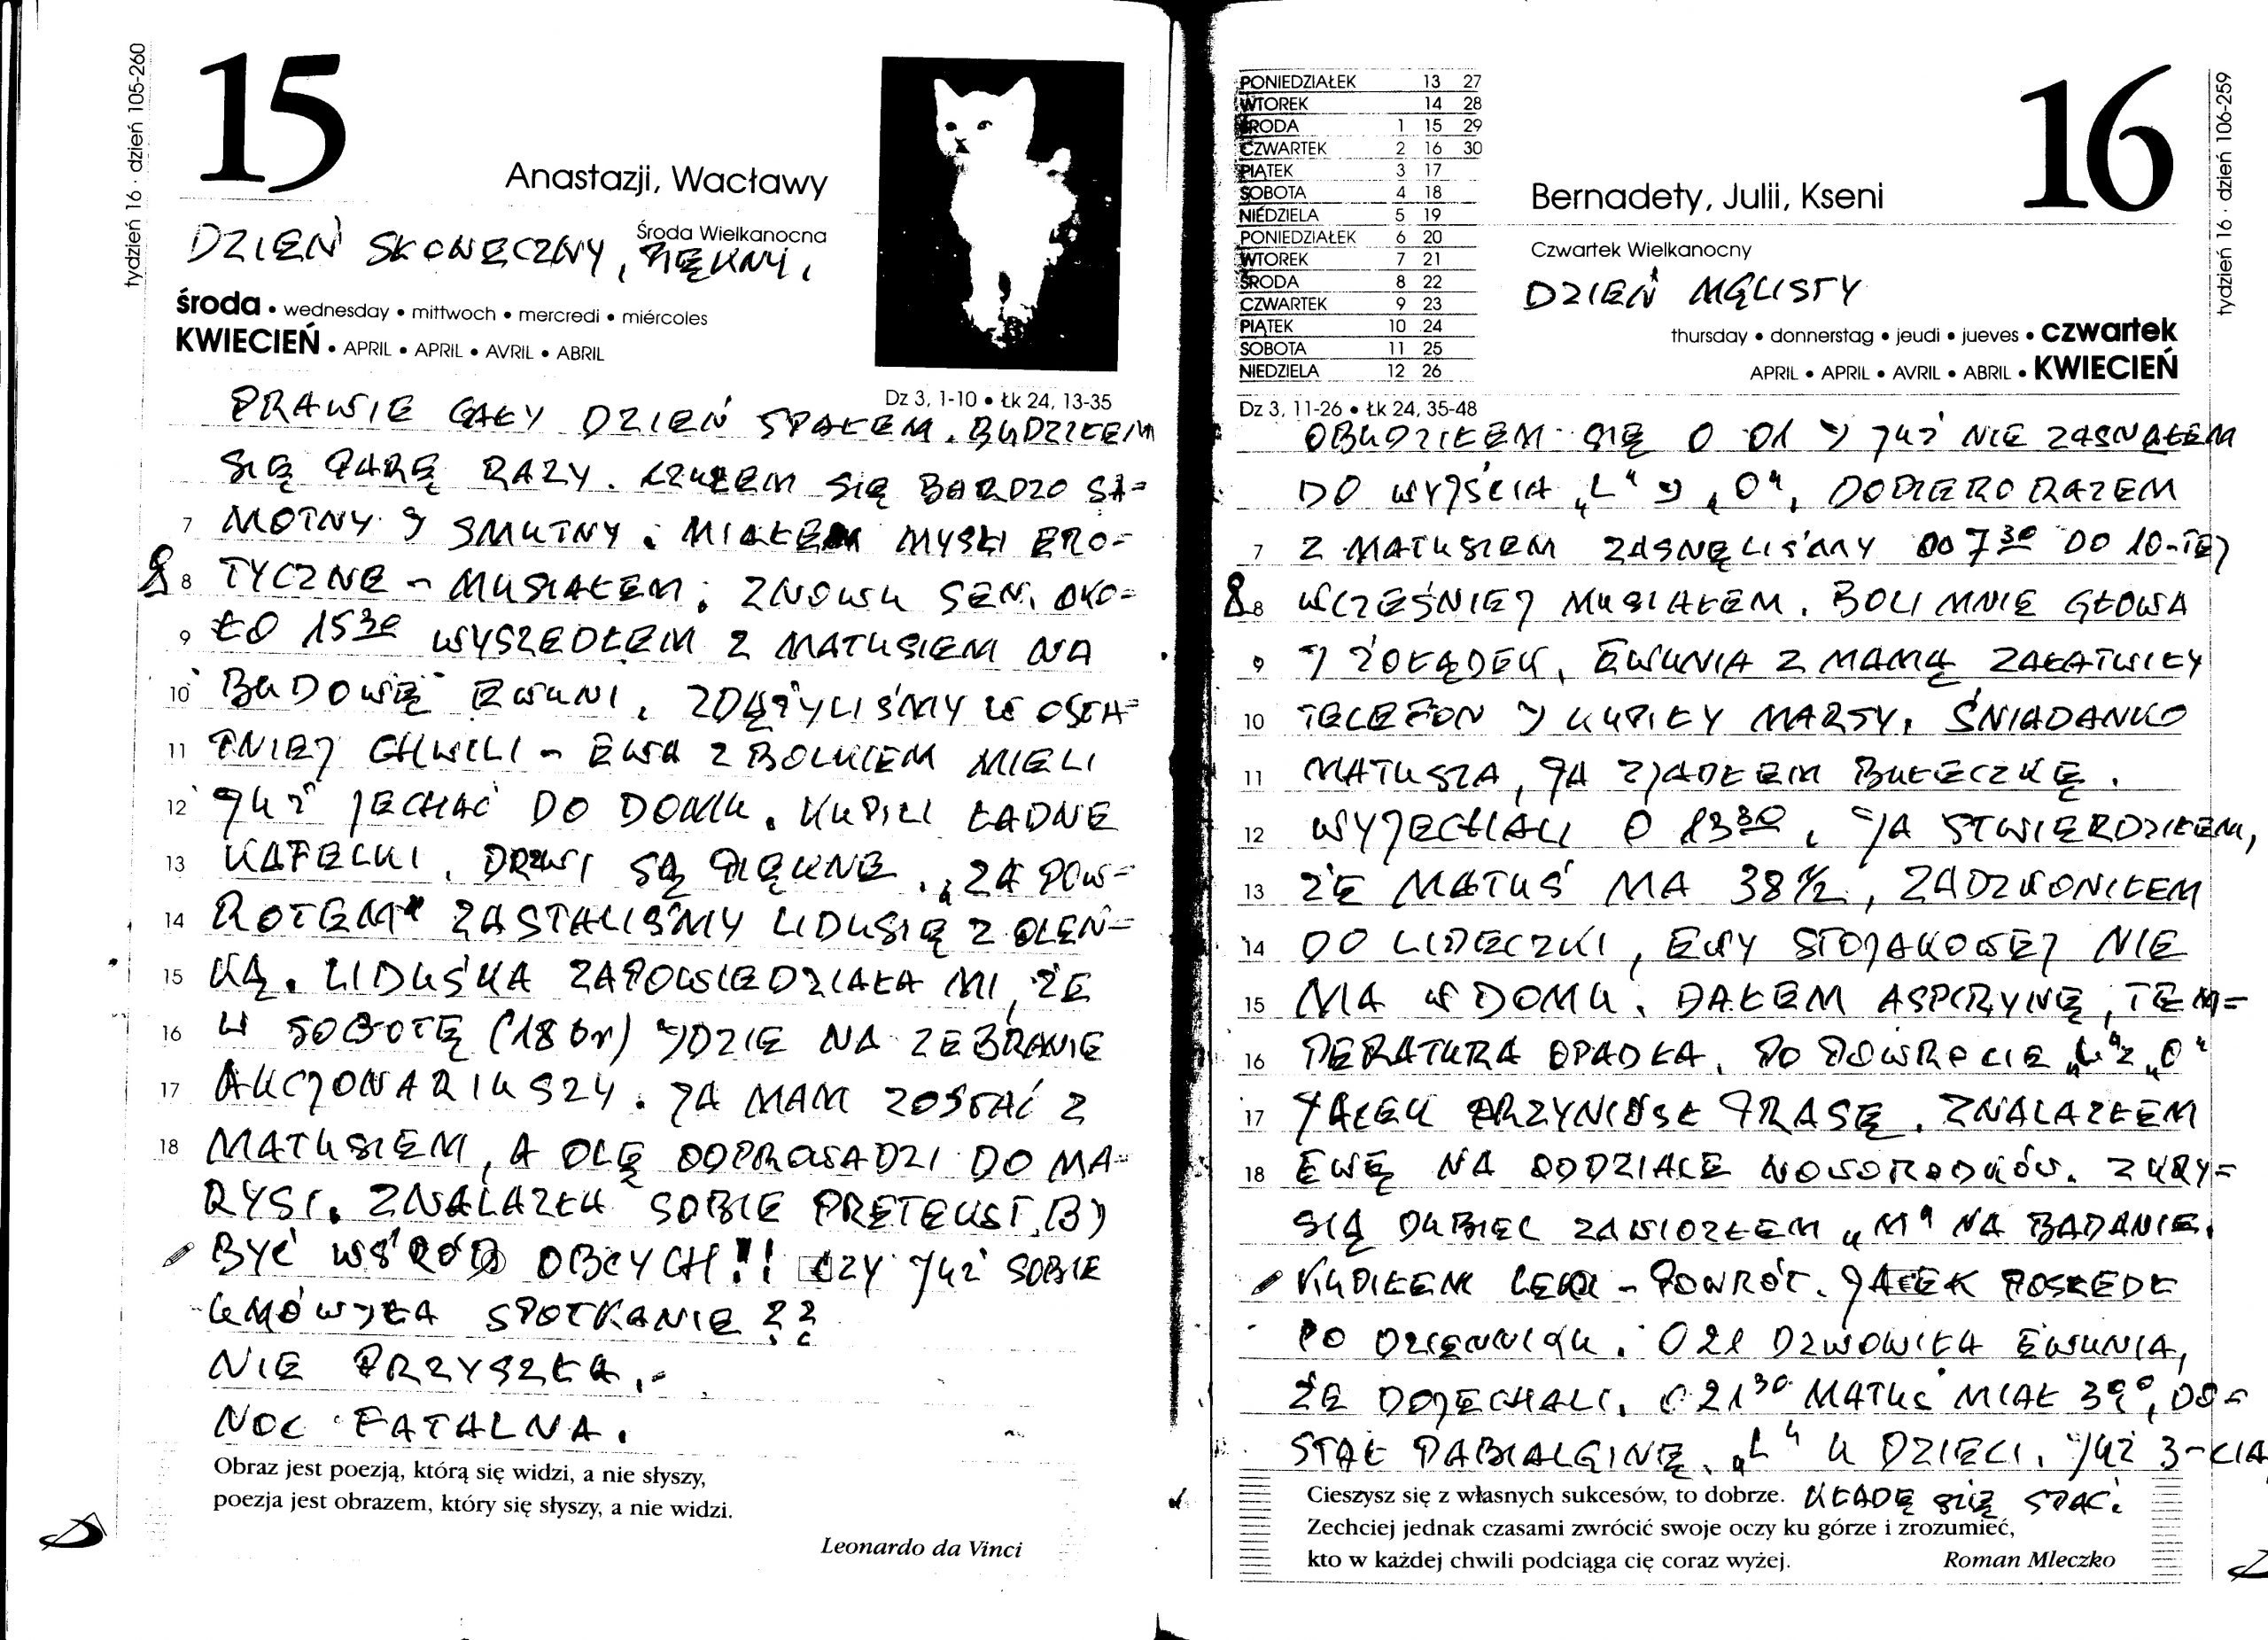 tydzień 16 · dzień 105-260
15
Anastazji, Wacławy
Środa Wielkanocna
DZIEŃ SŁONECZNY, PIĘKNY.
środa • wednesday • mittwoch • mercredi • miércoles
KWIECIEŃ • APRIL • APRIL • AVRIL • ABRIL
Dz 3, 1-10 • Łk 24, 13-35
PRAWIE CAŁY DZIEŃ SPAŁEM. BUDZIŁEM
SIĘ PARĘ RAZY. CZUŁEM SIĘ BARDZO SA=
7 MOTNY I SMUTNY. MIAŁEM MYSLI ERO=
8 TYCZNE - MUSIAŁEM. ZNOWU SEN. OKO=
9 ŁO 15 30 WYSZEDŁEM Z MATUSIEM NA
10 "BUDOWĘ" EWUNI. ZDĄŻYLIŚMY W OSTA=
11 TNIEJ CHWILI - EWA Z BOLKIEM MIELI
12 JUŻ JECHAĆ DO DOMU. KUPILI ŁADNE
13 KAFELKI. DRZWI SĄ PIĘKNE. „ZA POW=
14 ROTEM" ZASTALIŚMY LIDUSIĘ Z OLEŃ=
15 KĄ. LIDUŚKA ZAPOWIEDZIAŁA MI, ŻE
16 W SOBOTĘ (18 br) IDZIE NA ZEBRANIE
17 AKCJONARIUSZY. JA MAM ZOSTAĆ Z
18 MATUSIEM, A OLĘ ODPROWADZI DO MA=
RYSI. ZNALAZŁA SOBIE PRETEKST, BY
BYĆ WŚRÓD OBCYCH!! CZY JUŻ SOBIE
UMÓWIŁA SPOTKANIE??
NIE PRZYSZŁA.-
NOC FATALNA.
Obraz jest poezją, którą się widzi, a nie słyszy,
poezja jest obrazem, który się słyszy, a nie widzi.
Leonardo da Vinci
PONIEDZIAŁEK 13 27
WTOREK 14 28
ŚRODA 1 15 29
CZWARTEK 2 16 30
PIĄTEK 3 17
SOBOTA 4 18
NIEDZIELA 5 19
PONIEDZIAŁEK 6 20
WTOREK 7 21
ŚRODA 8 22
CZWARTEK 9 23
PIĄTEK 10 24
SOBOTA 11 25
NIEDZIELA 12 26
16
tydzień 16 · dzień 106-259
Bernadety, Julii, Kseni
Czwartek Wielkanocny
DZIEŃ MGLISTY
thursday • donnerstag • jeudi • jueves • czwartek
APRIL • APRIL • AVRIL • ABRIL • KWIECIEŃ
Dz 3, 11-26 • Łk 24, 35-48
OBUDZIŁEM SIĘ O 01 I JUŻ NIE ZASNĄŁEM
DO WYJŚCIA „L" I „O", DOPIERO RAZEM
7 Z MATUSIEM ZASNĘLIŚMY OD 7 30 DO 10-TEJ
8 WCZEŚNIEJ MUSIAŁEM. BOLI MNIE GŁOWA
9 I ŻOŁĄDEK. EWUNIA Z MAMĄ ZAŁATWIŁY
10 TELEFON I KUPIŁY MARSY. ŚNIADANKO
11 MATUSZA, JA ZJADŁEM BUŁECZKĘ.
12 WYJECHALI O 13 30. JA STWIERDZIŁEM,
13 ŻE MATUŚ MA 38 1/2, ZADZWONIŁEM
14 DO LIDECZKI, EWY STOJAKOWEJ NIE
15 MA W DOMU. DAŁEM ASPIRYNĘ, TEM=
16 PERATURA OPADŁA. PO POWROCIE „L" Z „O"
17 JACEK PRZYNIÓSŁ PRASĘ. ZNALAZŁEM
18 EWĘ NA ODDZIALE NOWORODKÓW. Z KRY=
SIĄ DUBIEC ZAWIOZŁEM „M" NA BADANIE.
KUPIŁEM LEKI - POWRÓT. JACEK POSZEDŁ
PO DZIENNIKU. O 21 DZWONIŁA EWUNIA,
ŻE DOJECHALI. O 21 30 MATUŚ MIAŁ 39°, DO=
STAŁ PABIALGINĘ. „L" U DZIECI. JUŻ 3-CIA
KŁADĘ SIĘ SPAĆ.
Cieszysz się z własnych sukcesów, to dobrze.
Zechciej jednak czasami zwrócić swoje oczy ku górze i zrozumieć,
kto w każdej chwili podciąga cię coraz wyżej.
Roman Mleczko